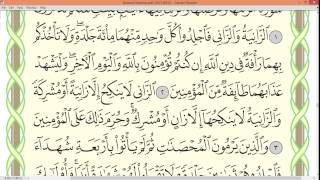 ١ ٱلزَّانِيَةُ وَٱلزَّانِي فَٱجْلِدُوا۟ كُلَّ وَٰحِدٍ مِّنْهُمَا مِا۟ئَةَ جَلْدَةٍ وَلَا تَأْخُذْكُم
بِهِمَا رَأْفَةٌ فِي دِينِ ٱللَّهِ إِن كُنتُمْ تُؤْمِنُونَ بِٱللَّهِ وَٱلْيَوْمِ ٱلْـَٔاخِرِ وَلْيَشْهَدْ
عَذَابَهُمَا طَآئِفَةٌ مِّنَ ٱلْمُؤْمِنِينَ ٢ ٱلزَّانِي لَا يَنكِحُ إِلَّا زَانِيَةً أَوْ مُشْرِكَةً
وَٱلزَّانِيَةُ لَا يَنكِحُهَآ إِلَّا زَانٍ أَوْ مُشْرِكٌ وَحُرِّمَ ذَٰلِكَ عَلَى ٱلْمُؤْمِنِينَ
٣ وَٱلَّذِينَ يَرْمُونَ ٱلْمُحْصَنَٰتِ ثُمَّ لَمْ يَأْتُوا۟ بِأَرْبَعَةِ شُهَدَآءَ